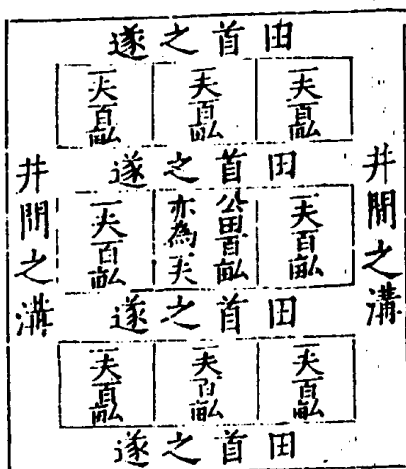 田首之遂
一夫百畝
一夫百畝
一夫百畝
井間之溝
田首之遂
一夫百畝
公田百畝
亦為一夫
一夫百畝
井間之溝
田首之遂
一夫百畝
一夫百畝
一夫百畝
田首之遂